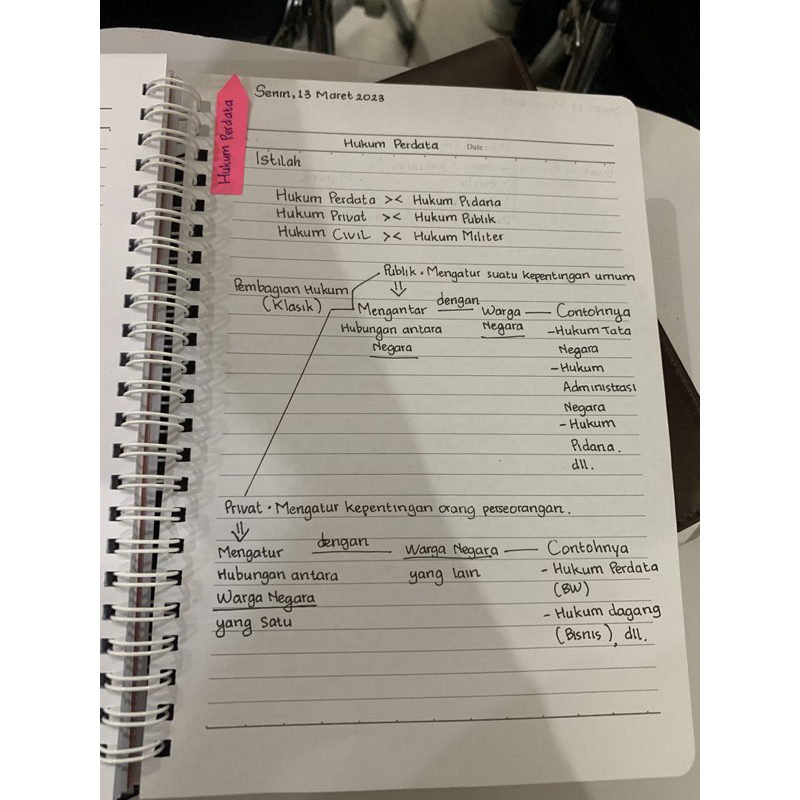 Senin, 13 Maret 2023
Hukum Perdata
Hukum Perdata Date :
Istilah
Hukum Perdata >< Hukum Pidana
Hukum Privat >< Hukum Publik
Hukum Civil >< Hukum Militer
Pembagian Hukum (Klasik)
Publik • Mengatur suatu kepentingan umum
⇓
Mengantar dengan Warga — Contohnya
Hubungan antara Negara - Hukum Tata
Negara Negara
- Hukum
Administrasi
Negara
- Hukum
Pidana.
dll.
Privat • Mengatur kepentingan orang perseorangan.
⇓
Mengatur dengan Warga Negara — Contohnya
Hubungan antara yang lain - Hukum Perdata
Warga Negara (BW)
yang Satu - Hukum dagang
(Bisnis), dll.